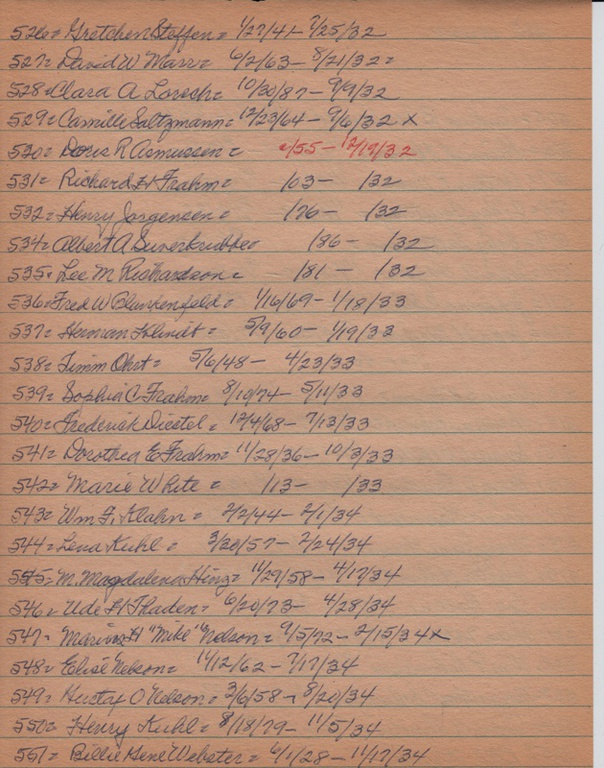 526= Gretchen Steffen= 1/27/41- 7/25/32
527= David W Marr= 6/2/63- 8/21/32=
528= Clara A Lorsch= 10/30/87- 9/9/32
529= Camille Saltzmann= 12/23/64- 9/6/32 x
530= Doris R Asmussen= /55- 12/19/32
531= Richard H Frahm= /03- /32
532= Henry Jorgensen= /76- /32
534= Albert A Suverkrubbe= /86- /32
535= Lee M Richardson= /81- /32
536= Fred W Blunkenfeld= 1/16/69- 1/18/33
537= Herman Klindt= 5/9/60- 1/19/33
538= Timm Ohrt= 5/6/48- 4/23/33
539= Sophia C Frahm= 8/10/74- 5/11/33
540= Frederick Diestel= 12/4/68- 7/13/33
541= Dorothea E Frahm= 11/28/36- 10/3/33
542= Marie White= /13- /33
543= Wm F. Klahn= 2/2/44- 2/1/34
544= Lena Kuhl= 3/20/57- 2/24/34
545= M. Magdalena Hinz= 11/27/58- 4/17/34
546= Ude H Thaden= 6/20/73- 4/28/34
547= Marius H "Mike" Nelson= 9/5/72- 2/15/34 x
548= Elise Nelson= 11/12/62- 7/17/34
549= Gustaf O Nelson= 3/6/58- 8/20/34
550= Henry Kuhl= 8/18/79- 11/5/34
551= Billie Gene Webster= 6/1/28- 11/17/34